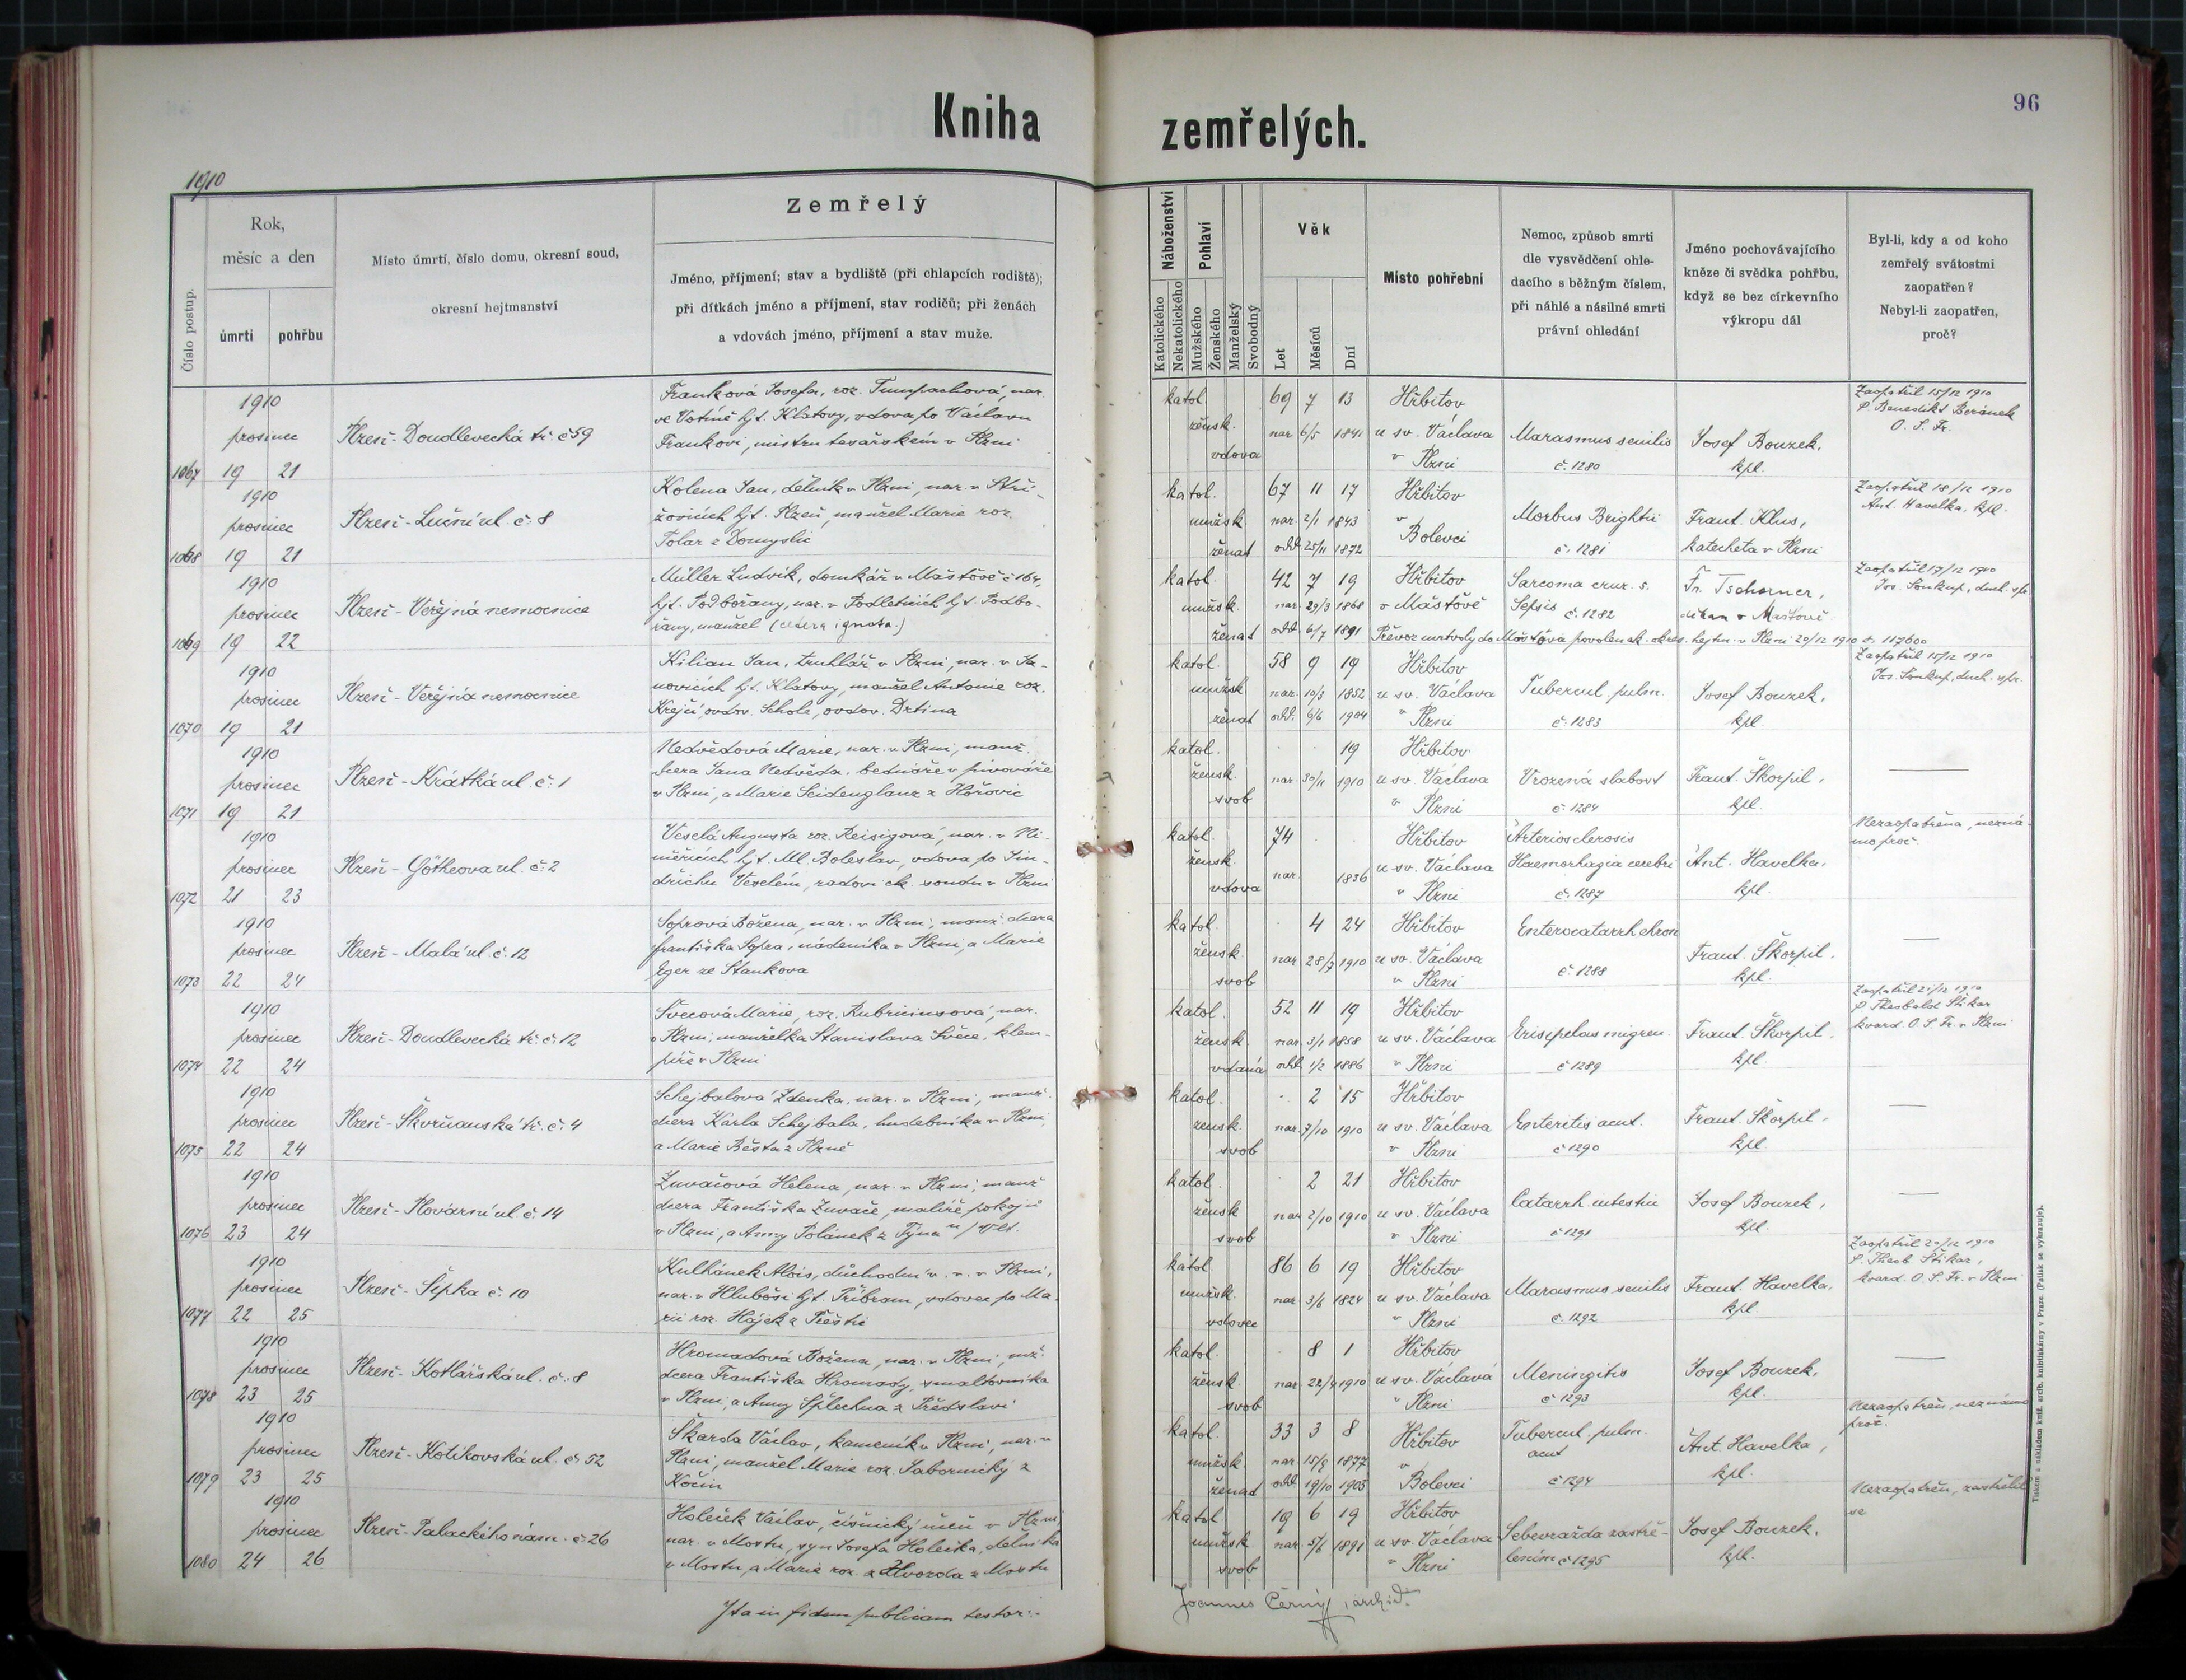 Kniha
zemřelých.
96
1910
Číslo postup.
Rok,
měsíc a den
úmrtí
pohřbu
Místo úmrtí, číslo domu, okresní soud,
okresní hejtmanství
Zemřelý
Jméno, příjmení; stav a bydliště (při chlapcích rodiště);
při dítkách jméno a příjmení, stav rodičů; při ženách
a vdovách jméno, příjmení a stav muže.
Náboženství
Katolického
Nekatolického
Pohlaví
Mužského
Ženského
Manželský
Svobodný
Věk
Let
Měsíců
Dní
Místo pohřební
Nemoc, způsob smrti
dle vysvědčení ohle-
dacího s běžným číslem,
při náhlé a násilné smrti
právní ohledání
Jméno pochovávajícího
kněze či svědka pohřbu,
když se bez církevního
výkropu dál
Byl-li, kdy a od koho
zemřelý svátostmi
zaopatřen?
Nebyl-li zaopatřen,
proč?
1067 1910 prosinec 19 21
Plzeň - Doudlevecká tř. č 59
Franková Josefa, roz. Tumpachová, nar.
ve Votíně hjt. Klatovy, vdova po Václavu
Frankovi, mistru tesařském v Plzni
katol. 69 7 13 Hřbitov
žensk. nar. 6/5 1841 u sv. Václava
vdova v Plzni
Marasmus senilis
č. 1280
Josef Bouzek,
kpl.
Zaopatřil 15/12 1910
P. Benedikt Beránek
O. S. Fr.
1068 1910 prosinec 19 21
Plzeň - Luční ul. č. 8
Kolena Jan, dělník v Plzni, nar. v Stří-
žovicích hjt. Plzeň, manžel Marie roz.
Tolar z Domyslic
katol. 67 11 17 Hřbitov
mužsk. nar. 2/1 1843 v
ženat odd. 25/11 1872 Bolevci
Morbus Brightii
č. 1281
Frant. Klus,
katecheta v Plzni
Zaopatřil 18/12 1910
Ant. Havelka, kpl.
1069 1910 prosinec 19 22
Plzeň - Veřejná nemocnice
Müller Ludvík, domkář v Mäštově č 164,
hjt. Podbořany, nar. v Podleticích hjt. Podbo-
řany, manžel (cetera ignota.)
katol. 42 7 19 Hřbitov
mužsk. nar. 29/3 1868 v Mäštově
ženat odd. 6/7 1891
Sarcoma crur. s.
Sepsis č. 1282
Fr. Tschorner,
děkan v Maštově
Převoz mrtvoly do Mäštova povolen ck. okres. hejtm. v Plzni 20/12 1910 č. 117600
Zaopatřil 17/12 1910
Jos. Soukup, duch. spr.
1070 1910 prosinec 19 21
Plzeň - Veřejná nemocnice
Kilian Jan, truhlář v Plzni, nar. v Ja-
novicích hjt. Klatovy, manžel Antonie roz.
Krejčí ovdov. Schole, ovdov. Drtina
katol. 58 9 19 Hřbitov
mužsk. nar. 10/3 1852 u sv. Václava
ženat odd. 6/6 1904 v Plzni
Tubercul. pulm.
č. 1283
Josef Bouzek,
kpl.
Zaopatřil 15/12 1910
Jos. Soukup, duch. spr.
1071 1910 prosinec 19 21
Plzeň - Krátká ul. č. 1
Nedvědová Marie, nar. v Plzni, manž.
dcera Jana Nedvěda, bednáře v pivováře
v Plzni, a Marie Seidenglanz z Hořovic
katol. 19 Hřbitov
žensk. nar. 30/11 1910 u sv. Václava
svob v Plzni
Vrozená slabost
č. 1284
Frant. Škorpil,
kpl.
1072 1910 prosinec 21 23
Plzeň - Götheova ul. č. 2
Veselá Augusta roz. Reisigová, nar. v Ni-
měřicích hjt. Ml. Boleslav, vdova po Jin-
dřichu Veselém, radovi ck. soudu v Plzni
katol. 74 Hřbitov
žensk. nar. 1836 u sv. Václava
vdova v Plzni
Arteriosclerosis
Haemorhagia cerebri
č. 1287
Ant. Havelka,
kpl.
Nezaopatřena, nezná-
mo proč.
1073 1910 prosinec 22 24
Plzeň - Malá ul. č. 12
Soprová Božena, nar. v Plzni, manž. dcera
Františka Sopra, nádeníka v Plzni, a Marie
Eger ze Stankova
katol. 4 24 Hřbitov
žensk. nar 28/7 1910 u sv. Václava
svob v Plzni
Enterocatarrh chron
č. 1288
Frant. Škorpil,
kpl.
1074 1910 prosinec 22 24
Plzeň - Doudlevecká tř. č. 12
Švecová Marie, roz. Rubriciusová, nar.
v Plzni, manželka Stanislava Švece, klem-
píře v Plzni
katol. 52 11 19 Hřbitov
žensk. nar. 3/1 1858 u sv. Václava
vdaná odd. 1/2 1886 v Plzni
Erisipelas migren.
č 1289
Frant. Škorpil,
kpl.
Zaopatřil 21/12 1910
P. Theobald Štikar
kvard. O. S. Fr. v Plzni
1075 1910 prosinec 22 24
Plzeň - Škvrňanská tř. č. 4
Schejbalová Zdenka, nar. v Plzni, manž.
dcera Karla Schejbala, hudebníka v Plzni,
a Marie Běšta z Plzně
katol. 2 15 Hřbitov
žensk. nar. 7/10 1910 u sv. Václava
svob v Plzni
Enteritis acut.
č 1290
Frant. Škorpil,
kpl.
1076 1910 prosinec 23 24
Plzeň - Plovární ul. č. 14
Žuvačová Helena, nar. v Plzni, manž
dcera Františka Žuvače, malíře pokojů
v Plzni, a Anny Polánek z Týna n/Vlt.
katol. 2 21 Hřbitov
žensk nar 2/10 1910 u sv. Václava
svob v Plzni
Catarrh intestin
č 1291
Josef Bouzek,
kpl.
1077 1910 prosinec 22 25
Plzeň - Šipka č. 10
Kulhánek Alois, důchodní v. v. v Plzni,
nar. v Hluboši hjt. Příbram, vdovec po Ma-
rii roz. Hájek z Přeštic
katol 86 6 19 Hřbitov
mužsk. nar 3/6 1824 u sv. Václava
vdovec v Plzni
Marasmus senilis
č. 1292
Frant. Havelka,
kpl.
Zaopatřil 20/12 1910
P. Theob. Štikar,
kvard. O. S. Fr. v Plzni
1078 1910 prosinec 23 25
Plzeň - Kotlářská ul. č. 8
Hromadová Božena, nar. v Plzni, mž.
dcera Františka Hromady, smaltovníka
v Plzni, a Anny Šplechna z Předslavi
katol. 8 1 Hřbitov
žensk. nar 22/4 1910 u sv. Václava
svob v Plzni
Meningitis
č 1293
Josef Bouzek,
kpl.
1079 1910 prosinec 23 25
Plzeň - Kotikovská ul. č 52
Škarda Václav, kameník v Plzni, nar. v
Plzni, manžel Marie roz. Javornický z
Kočin
katol. 33 3 8 Hřbitov
mužsk. nar. 15/9 1877 v
ženat odd 19/10 1905 Bolevci
Tubercul. pulm.
acut
č 1294
Ant Havelka,
kpl.
Nezaopatřen, neznámo
proč.
1080 1910 prosinec 24 26
Plzeň - Palackého nám. č. 26
Holeček Václav, číšnický učeň v Plzni
nar. v Mostu, syn Josefa Holečka, dělníka
v Mostu, a Marie roz. Hvozda z Mostu
katol. 19 6 19 Hřbitov
mužsk nar. 5/6 1891 u sv. Václava
svob v Plzni
Sebevražda zastře-
lením č 1295
Josef Bouzek,
kpl.
Nezaopatřen, zastřelil
se
Ita in fidem publicam testor:-
Joannes Černý, archid.
Tiskem a nákladem kníž. arcib. knihtiskárny v Praze. (Padak se vykazuje).